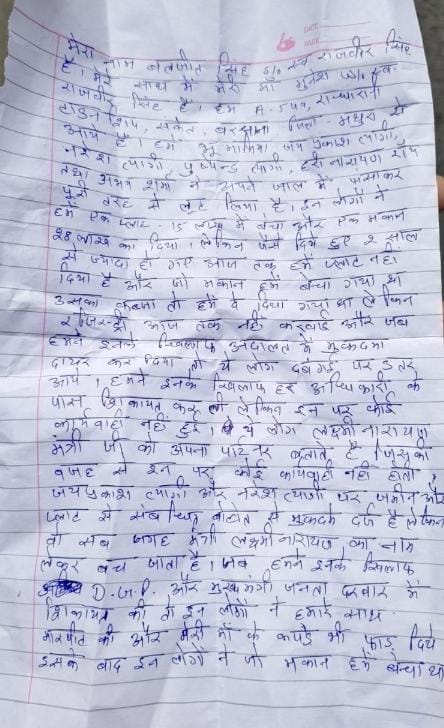 DATE
PAGE
मेरा नाम बलजीत सिंह S/o स्व राजवीर सिंह
है। मेरे साथ में मेरी माँ मुनेश W/o स्व.
राजवीर सिंह है। हम A- राधारानी
टाउनशिप, संकेत, बरसाना जिला- मथुरा से
आये है। हमें भू माफिया जय प्रकाश त्यागी,
नरेश त्यागी, पुष्पेन्द्र त्यागी, हरी नारायण
तथा अभय शर्मा ने अपने जाल में फंसाकर
पूरी तरह से लूट लिया है। इन लोगों ने
हमें एक प्लाट 15 लाख में बेचा और एक मकान
28 लाख का दिया। लेकिन पैसे दिये हुए 2 साल
से ज्यादा हो गए आज तक हमें प्लाट नहीं
दिया है और जो मकान हमें बेचा गया था
उसका कब्जा तो हमें दे दिया गया था लेकिन
रजिस्ट्री आज तक नहीं करवाई और जब
हमने इनके खिलाफ अदालत में मुकदमा
दायर कर दिया तो ये लोग दबंगई पर उतर
आये। हमने इनके खिलाफ हर अधिकारी के
पास शिकायत कर ली लेकिन इन पर कोई
कार्यवाही नहीं हुई। ये लोग लक्ष्मी नारायण
मंत्री जी को अपना पार्टनर बताते है जिसकी
वजह से इन पर कोई कार्यवाही नहीं होती,
जयप्रकाश त्यागी और नरेश त्यागी पर जमीन और
प्लाट से संबन्धित बहोत से मुकदमे दर्ज है लेकिन
वो सब जगह मंत्री लक्ष्मी नारायण का नाम
लेकर बच जाता है। जब हमने इनके खिलाफ
D.G.P. और मुख्यमंत्री, जनता दरबार में
शिकायत की तो इन लोगों ने हमारे साथ
मारपीट की और मेरी माँ के कपड़े भी फाड़ दिये
इसके बाद इन लोगों ने जो मकान हमें बेचा था